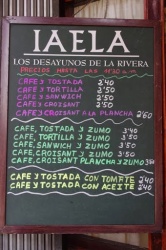 IAELA
LOS DESAYUNOS DE LA RIVERA
PRECIOS HASTA LAS 11'30 a.m
CAFE Y TOSTADA 2'40
CAFE Y TORTILLA 2'50
CAFE Y SANWICH 2'50
CAFE Y CROISANT 2'50
CAFE Y CROISANT A LA PLANCHA 2'60
CAFE, TOSTADA Y ZUMO 3'40
CAFE, TORTILLA Y ZUMO 3'50
CAFE, SANWICH Y ZUMO 3'50
CAFE, CROISANT Y ZUMO 3'50
CAFE, CROISANT PLANCHA Y ZUMO
CAFE Y TOSTADA CON TOMATE 2'40
CAFE Y TOSTADA CON ACEITE 2'40